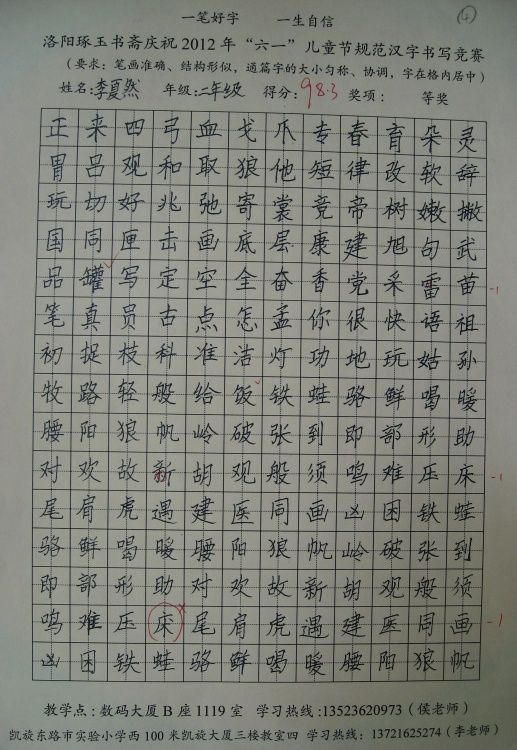 一笔好字 一生自信
④
洛阳琢玉书斋庆祝2012年“六一”儿童节规范汉字书写竞赛
(要求：笔画准确、结构形似，通篇字的大小匀称、协调，字在格内居中)
姓名:李夏然 年级:二年级 得分:98.3 奖项: 等奖
正来四弓血戈爪专春育朵灵
胃吕观和取狼他短律改软辞
玩切好兆弛寄裳竟帝树嫩撇
国同匣击画底层康建旭句武
品罐写定空全奋香党采雷苗 -1
笔真员古点怎孟你很快语祖
初捉枝科准洁灯功地玩姑孙
牧路轻般给饭铁蛙骆鲜喝暖
腰阳狼帆岭破张到即部形助
对欢故新胡观般须鸣难压床 -1
尾肩虎遇建医同画凶困铁蛙
骆鲜喝暖腰阳狼帆岭破张到
即部形助对欢故新胡观般须
鸣难压床尾肩虎遇建医同画 -1
凶困铁蛙骆鲜喝暖腰阳狼帆
教学点:数码大厦B座1119室 学习热线:13523620973(侯老师)
凯旋东路市实验小学西100米凯旋大厦三楼教室四 学习热线:13721625274(李老师)